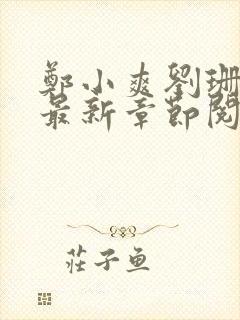 鄭小爽劉珊
最新章節閱
莊子魚